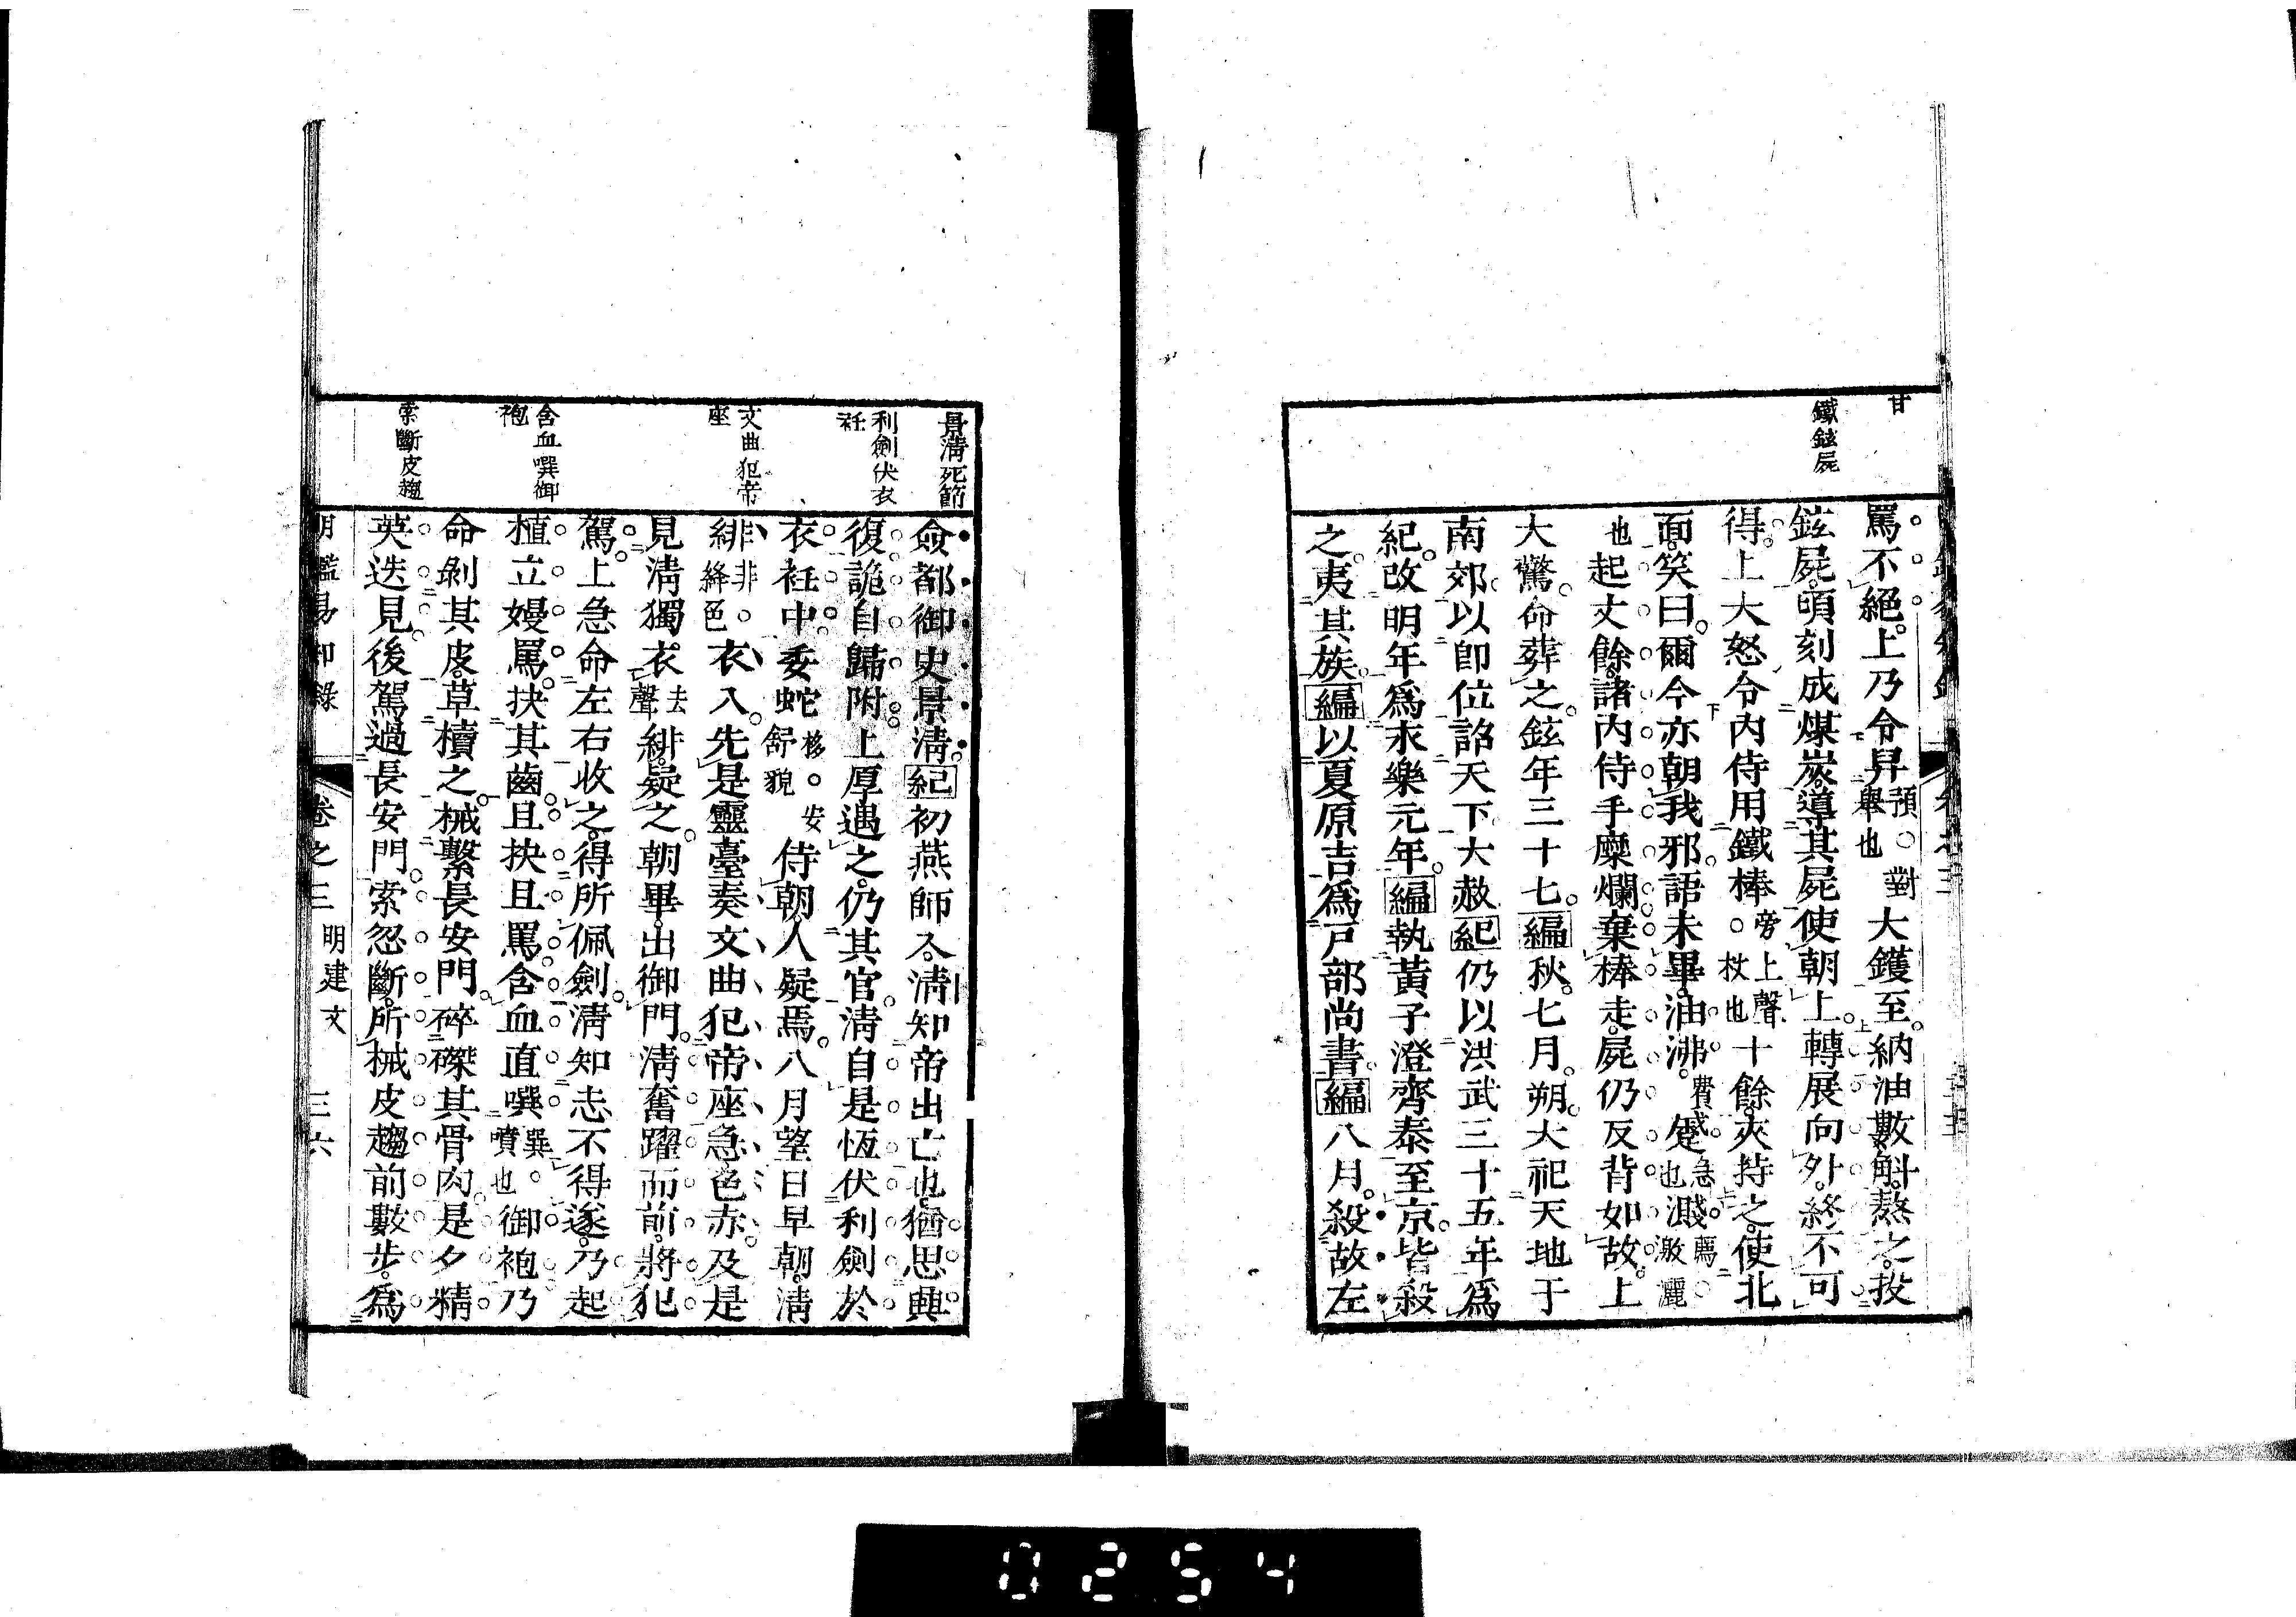 甘
鐵鉉屍
罵不絕上乃令舁預對舉也大鑊至納油數斛熬之投
鉉屍頃刻成煤炭導其屍使朝上轉展向外終不可
得上大怒令內侍用鐵棒旁上聲杖也十餘夾持之使北
面笑曰爾今亦朝我邪語未畢油沸費
也起丈餘諸內侍手糜爛棄棒走屍仍反背如故上
大驚命葬之鉉年三十七編秋七月朔大祀天地于
南郊以即位詔天下大赦紀仍以洪武三十五年爲
紀改明年爲永樂元年編執黃子澄齊泰至京皆殺
之夷其族編以夏原吉爲戶部尚書編八月殺故左
景清死節
利劍伏衣衽
文曲犯帝座
含血噀御袍
索斷皮趨
僉都御史景清紀初燕師入清知帝出亡也猶思興
復詭自歸附上厚遇之仍其官清自是恆伏利劍於
衣衽中委蛇移安舒貌侍朝人疑焉八月望日早朝清
緋非絳色衣入先是靈臺奏文曲犯帝座急色赤及是
見清獨衣去聲緋疑之朝畢出御門清奮躍而前將犯
駕上急命左右收之得所佩劍清知志不得遂乃起
植立嫚罵抉其齒且抉且罵含血直噀巽噴也御袍乃
命剝其皮草櫝之械繫長安門碎磔其骨肉是夕精
英迭見後駕過長安門索忽斷所械皮趨前數步爲
明鑑易知錄 卷之三 明建文 三六
0254